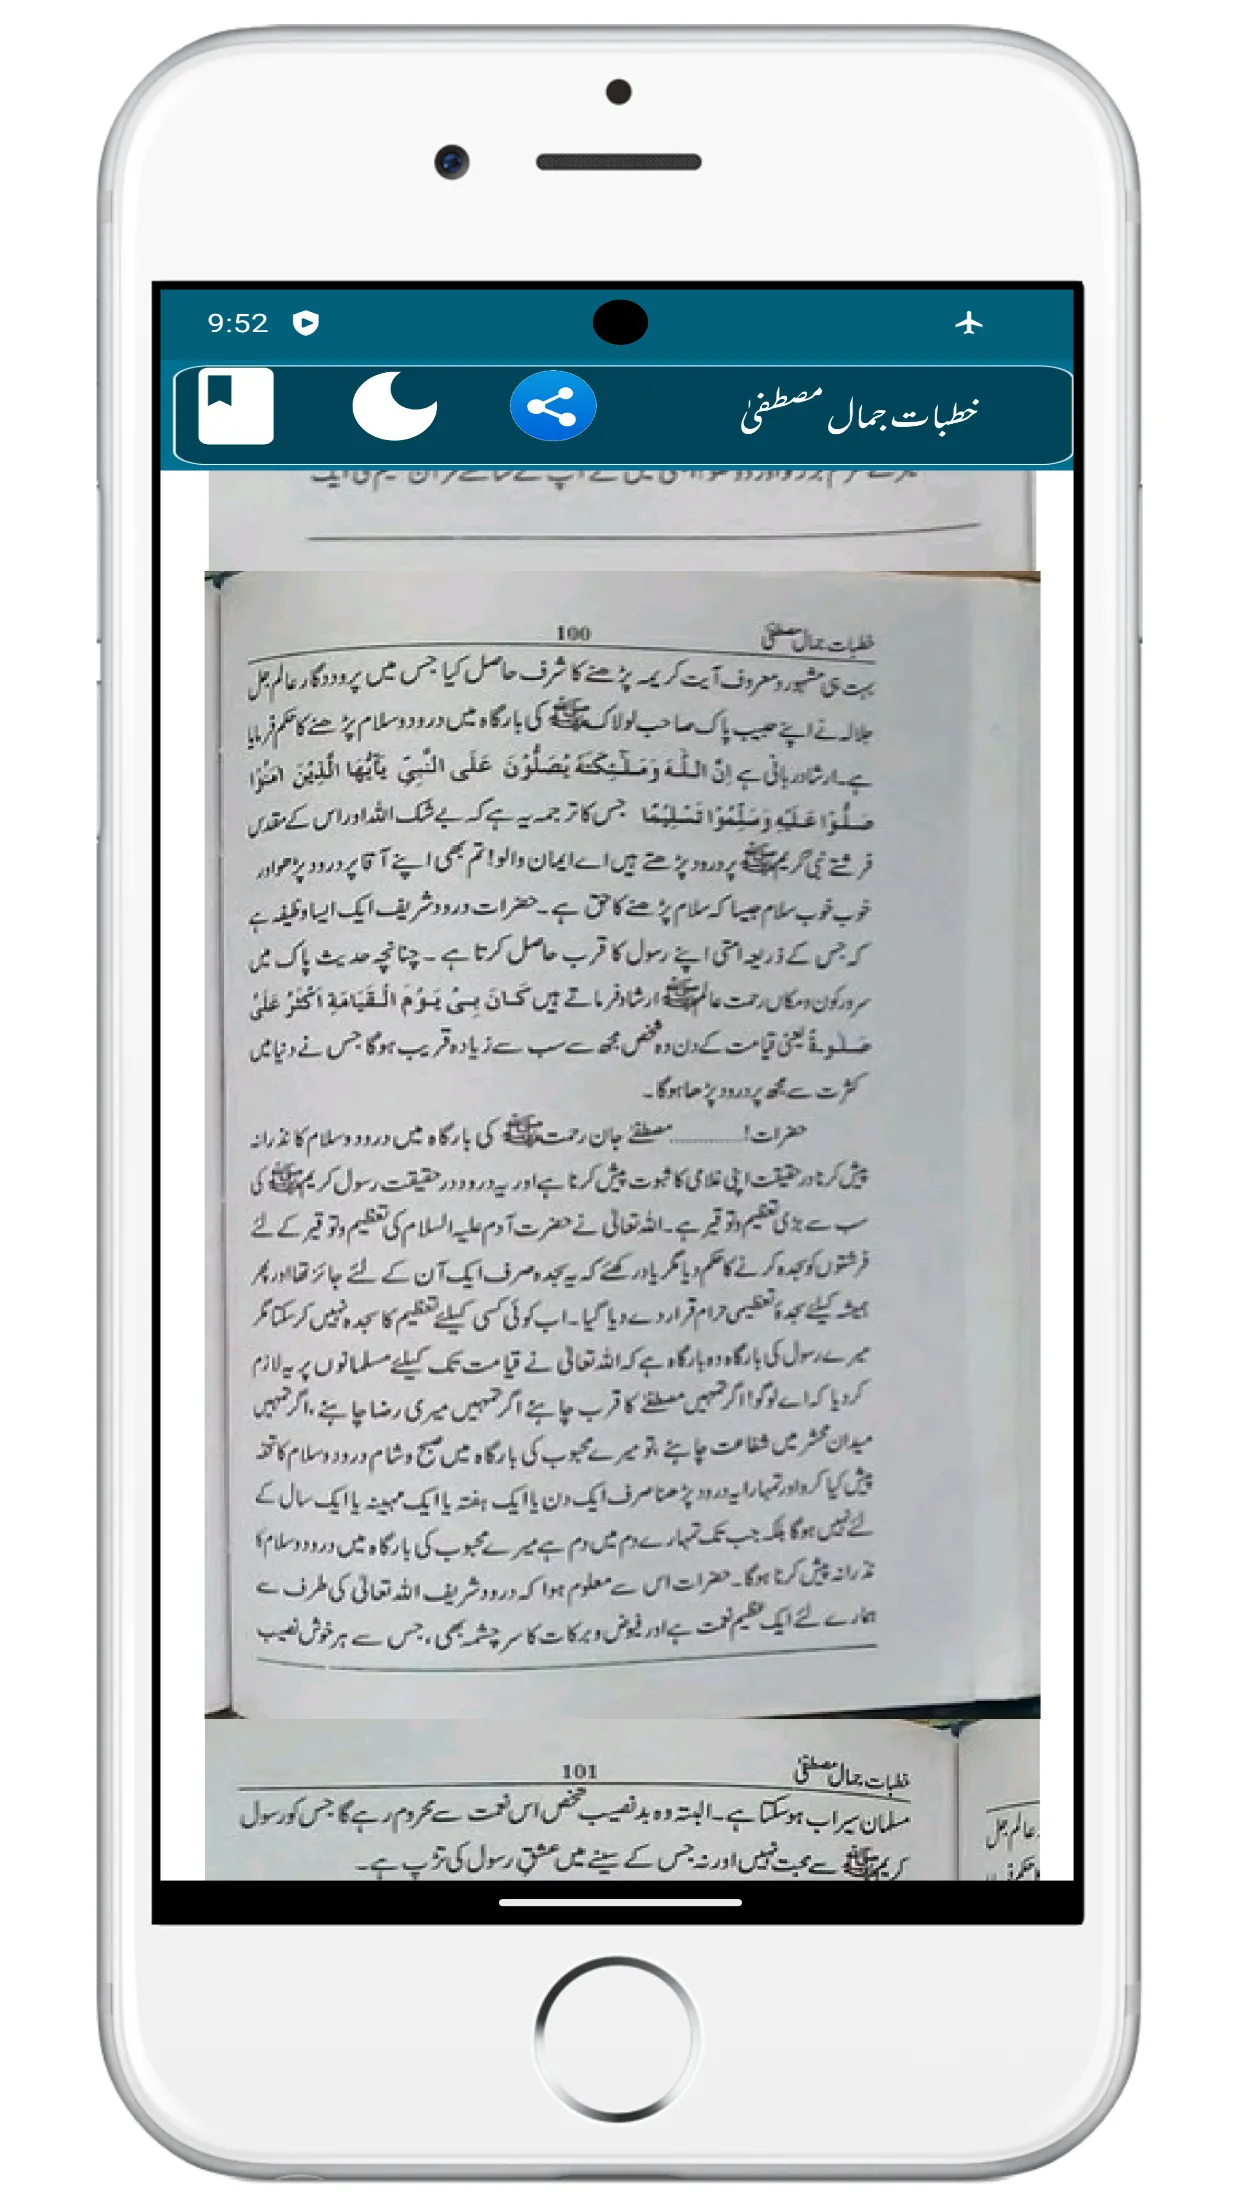 9:52
خطبات جمال مصطفیٰ
100
خطبات جمال مصطفیٰ
بہت ہی مشہور و معروف آیت کریمہ پڑھنے کا شرف حاصل کیا جس میں پروردگار عالم جل
جلالہ نے اپنے حبیب پاک صاحب لولاک ﷺ کی بارگاہ میں درود و سلام پڑھنے کا حکم فرمایا
ہے۔ ارشاد ربانی ہے اِنَّ اللّٰهَ وَمَلٰٓئِكَتَهٗ يُصَلُّوْنَ عَلَى النَّبِيِّ يٰٓاَيُّهَا الَّذِيْنَ اٰمَنُوْا
صَلُّوْا عَلَيْهِ وَسَلِّمُوْا تَسْلِيْمًا جس کا ترجمہ یہ ہے کہ بے شک اللہ اور اس کے مقدس
فرشتے نبی کریم ﷺ پر درود پڑھتے ہیں اے ایمان والو! تم بھی اپنے آقا پر درود پڑھو اور
خوب خوب سلام جیسا کہ سلام پڑھنے کا حق ہے۔ حضرات درود شریف ایک ایسا وظیفہ ہے
کہ جس کے ذریعہ امتی اپنے رسول کا قرب حاصل کرتا ہے ۔ چنانچہ حدیث پاک میں
سرور کون و مکاں رحمت عالم ﷺ ارشاد فرماتے ہیں كَانَ بِيْ يَوْمَ الْقِيَامَةِ اَكْثَرُ عَلَيَّ
صَلٰوةً یعنی قیامت کے دن وہ شخص مجھ سے سب سے زیادہ قریب ہوگا جس نے دنیا میں
کثرت سے مجھ پر درود پڑھا ہوگا۔
حضرات! ............ مصطفےٰ جان رحمت ﷺ کی بارگاہ میں درود و سلام کا نذرانہ
پیش کرنا در حقیقت اپنی غلامی کا ثبوت پیش کرنا ہے اور یہ درود در حقیقت رسول کریم ﷺ کی
سب سے بڑی تعظیم و توقیر ہے۔ اللہ تعالیٰ نے حضرت آدم علیہ السلام کی تعظیم و توقیر کے لئے
فرشتوں کو سجدہ کرنے کا حکم دیا مگر یاد رکھئے کہ یہ سجدہ صرف ایک آن کے لئے جائز تھا اور پھر
ہمیشہ کیلئے سجدۂ تعظیمی حرام قرار دے دیا گیا۔ اب کوئی کسی کیلئے تعظیم کا سجدہ نہیں کر سکتا مگر
میرے رسول کی بارگاہ وہ بارگاہ ہے کہ اللہ تعالیٰ نے قیامت تک کیلئے مسلمانوں پر یہ لازم
کر دیا کہ اے لوگو! اگر تمہیں مصطفےٰ کا قرب چاہئے اگر تمہیں میری رضا چاہئے ، اگر تمہیں
میدان محشر میں شفاعت چاہئے ، تو میرے محبوب کی بارگاہ میں صبح و شام درود و سلام کا تحفہ
پیش کیا کرو اور تمہارا یہ درود پڑھنا صرف ایک دن یا ایک ہفتہ یا ایک مہینہ یا ایک سال کے
لئے نہیں ہوگا بلکہ جب تک تمہارے دم میں دم ہے میرے محبوب کی بارگاہ میں درود و سلام کا
نذرانہ پیش کرنا ہوگا۔ حضرات اس سے معلوم ہوا کہ درود شریف اللہ تعالیٰ کی طرف سے
ہمارے لئے ایک عظیم نعمت ہے اور فیوض و برکات کا سر چشمہ بھی ، جس سے ہر خوش نصیب
101
خطبات جمال مصطفیٰ
مسلمان سیراب ہو سکتا ہے۔ البتہ وہ بدنصیب شخص اس نعمت سے محروم رہے گا جس کو رسول
کریم ﷺ سے محبت نہیں اور نہ جس کے سینے میں عشق رسول کی تڑپ ہے۔
عالم جل